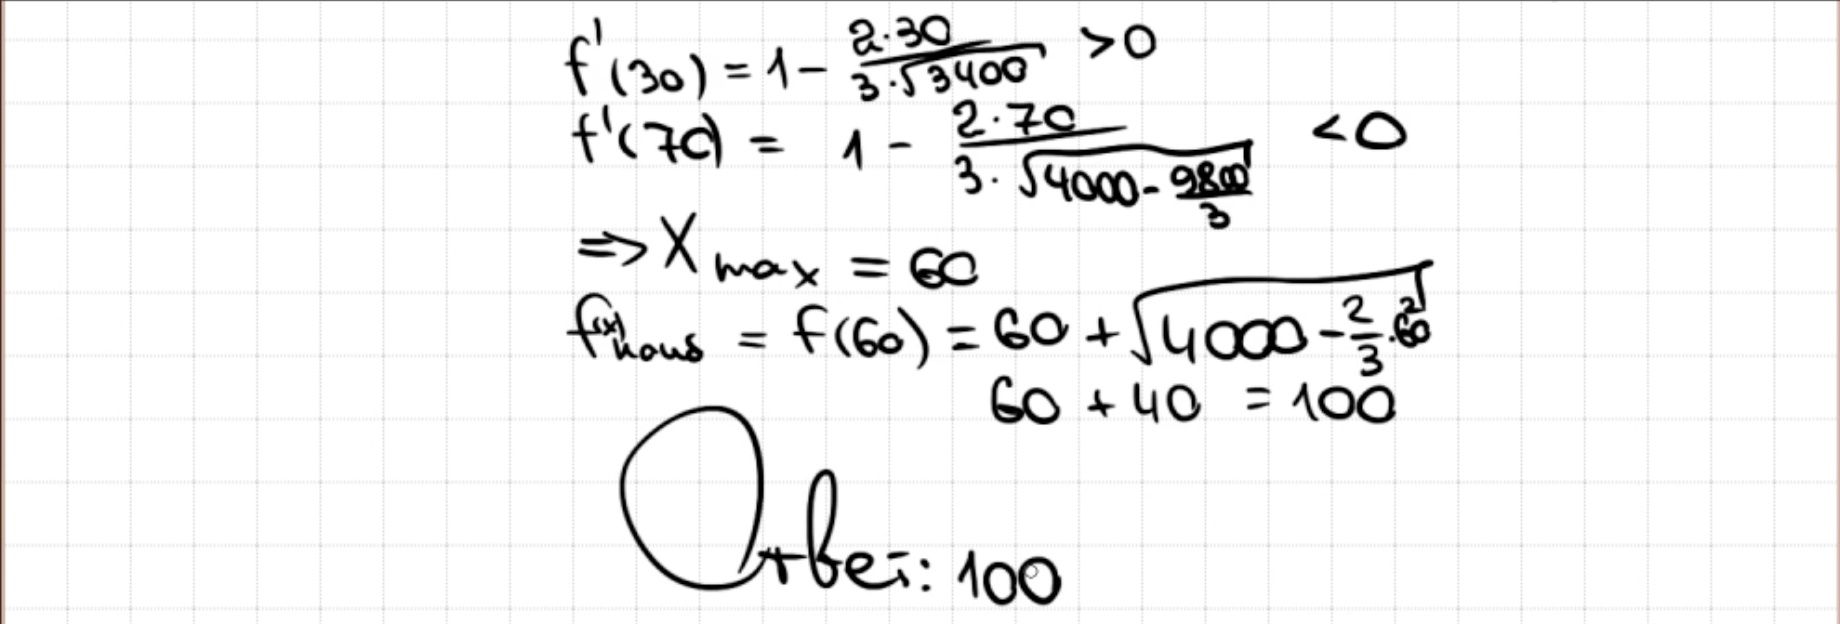 f'(30) = 1 - 2·30/(3·√3400) > 0
f'(70) = 1 - 2·70/(3·√(4000 - 9800/3)) < 0
=> X max = 60
f(x) наиб = f(60) = 60 + √(4000 - 2/3·60²)
60 + 40 = 100
Ответ: 100